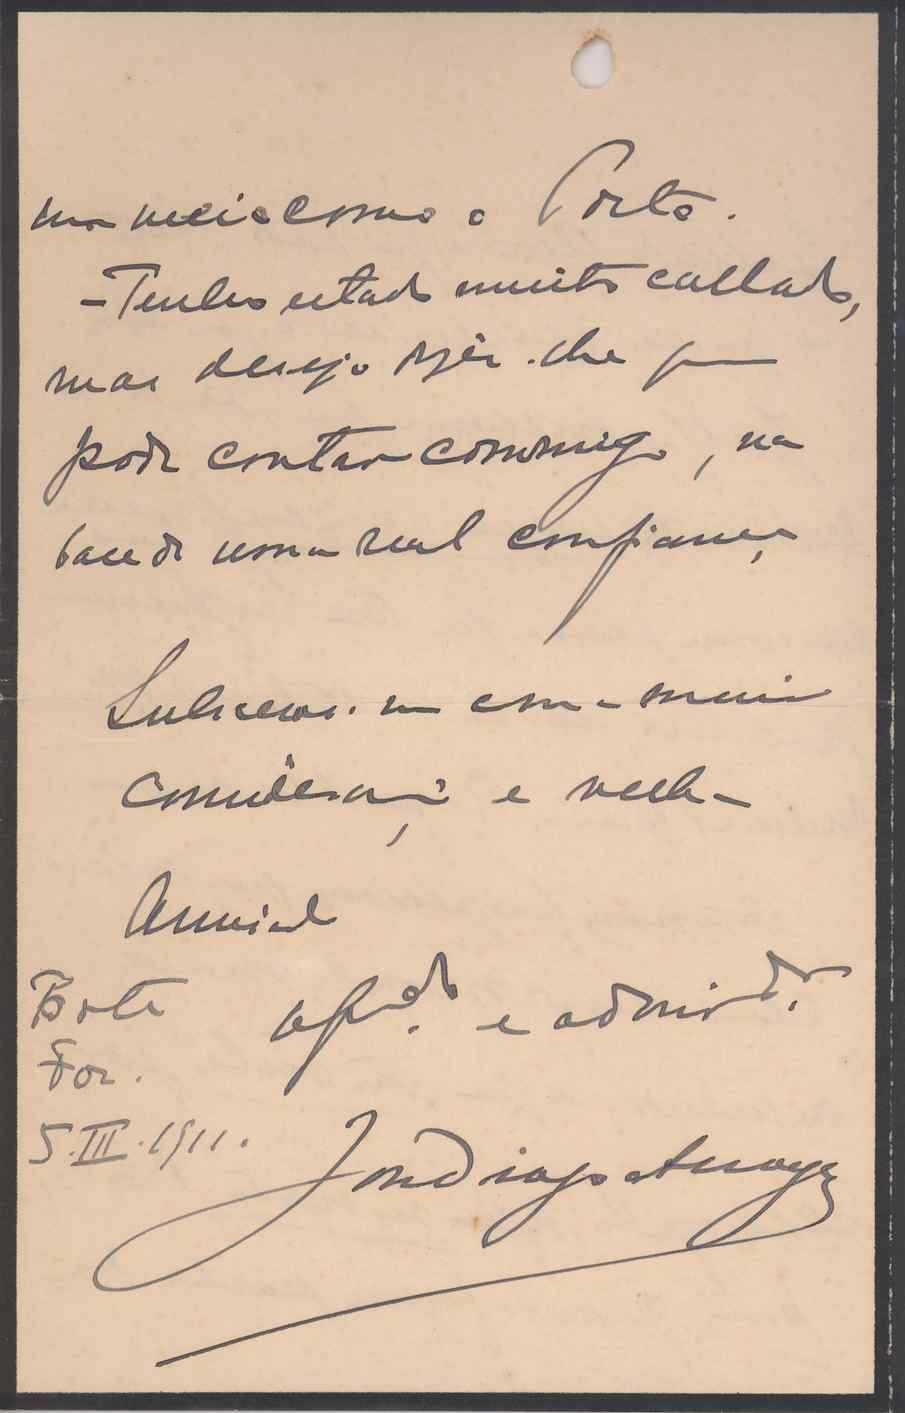 como o Porto.
- Tenho estado muito callado,
mas desejo dizer-lhe que
pode contar commigo, na
base de uma real confiança
Subscrevo-me com a maior
consideração e velha
Amizade
Porto
Foz.
5.III.1911.
e admirdor.
José Diogo Arroyo